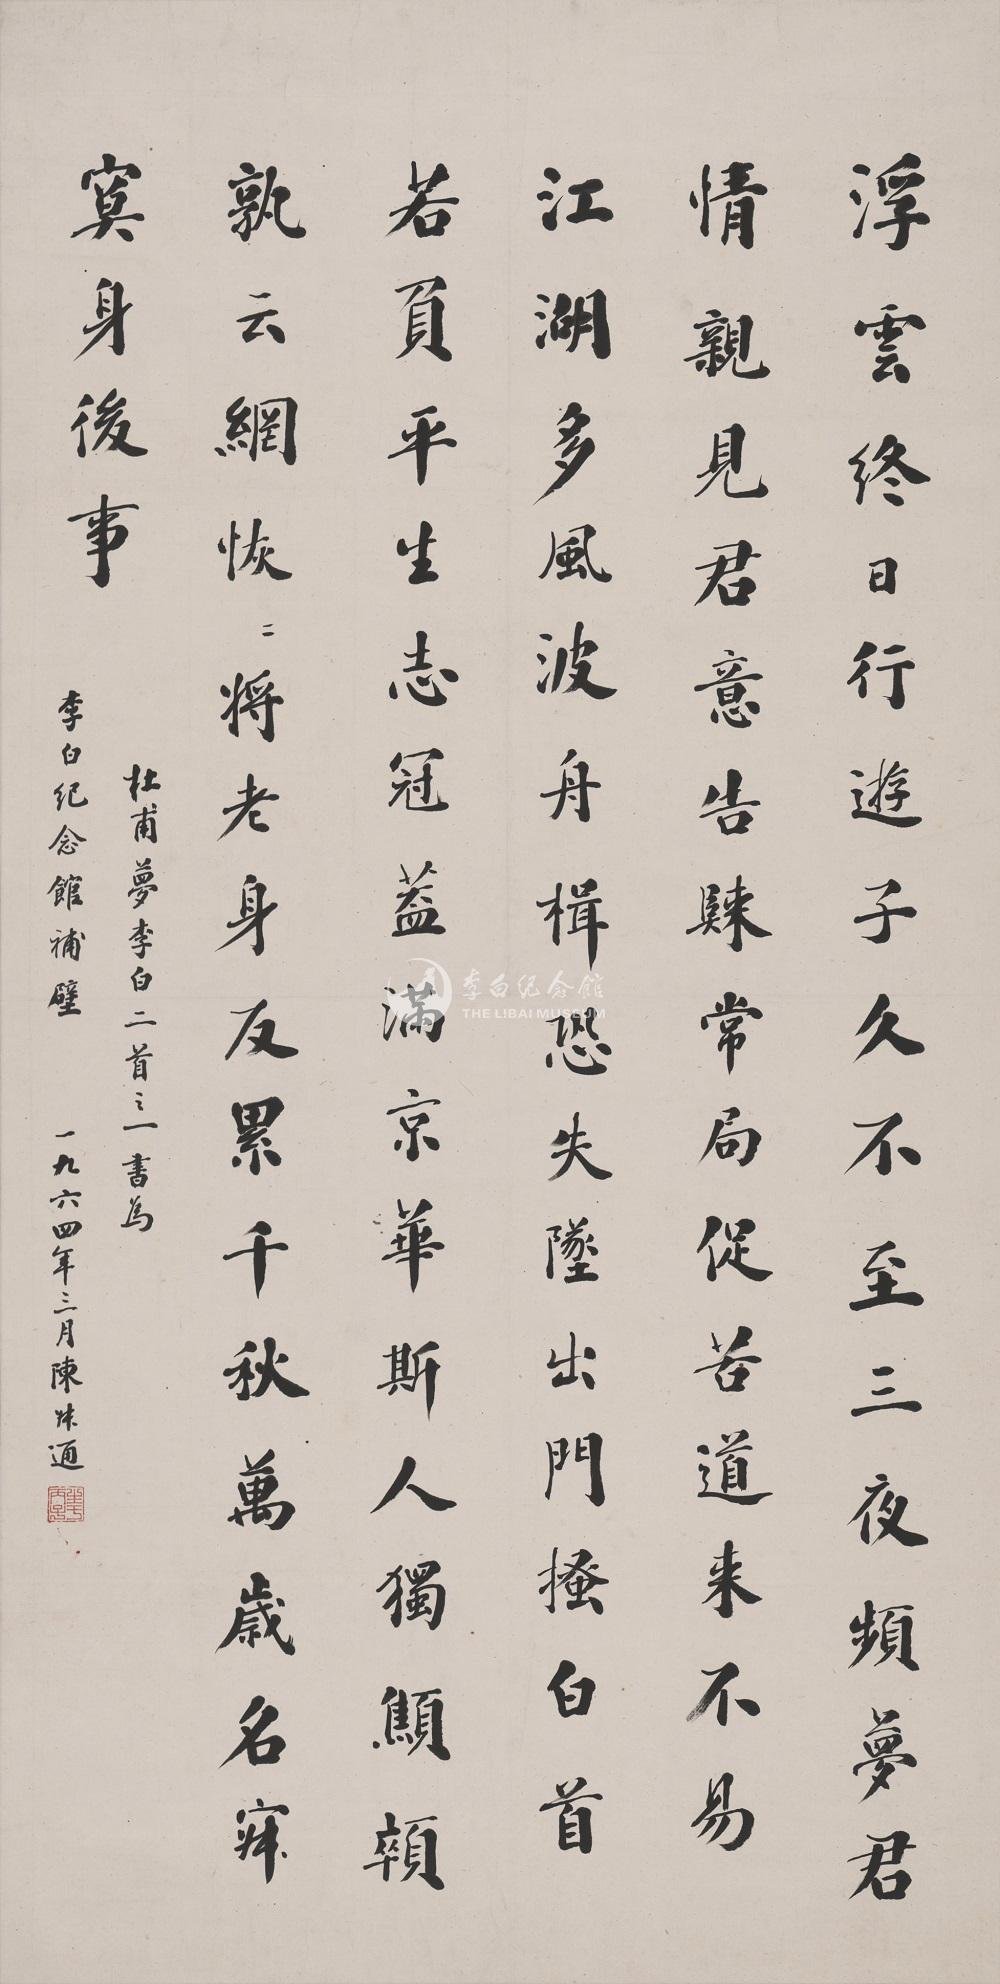 浮雲終日行遊子久不至三夜頻夢君
情親見君意告歸常局促苦道来不易
江湖多風波舟楫恐失墜出門搔白首
若負平生志冠蓋滿京華斯人獨顦顇
孰云網恢二将老身反累千秋萬歲名寂
寞身後事
杜甫夢李白二首之一書為
李白紀念館補壁 一九六四年三月陳叔通
李白纪念館
THE LIBAI MUSEUM